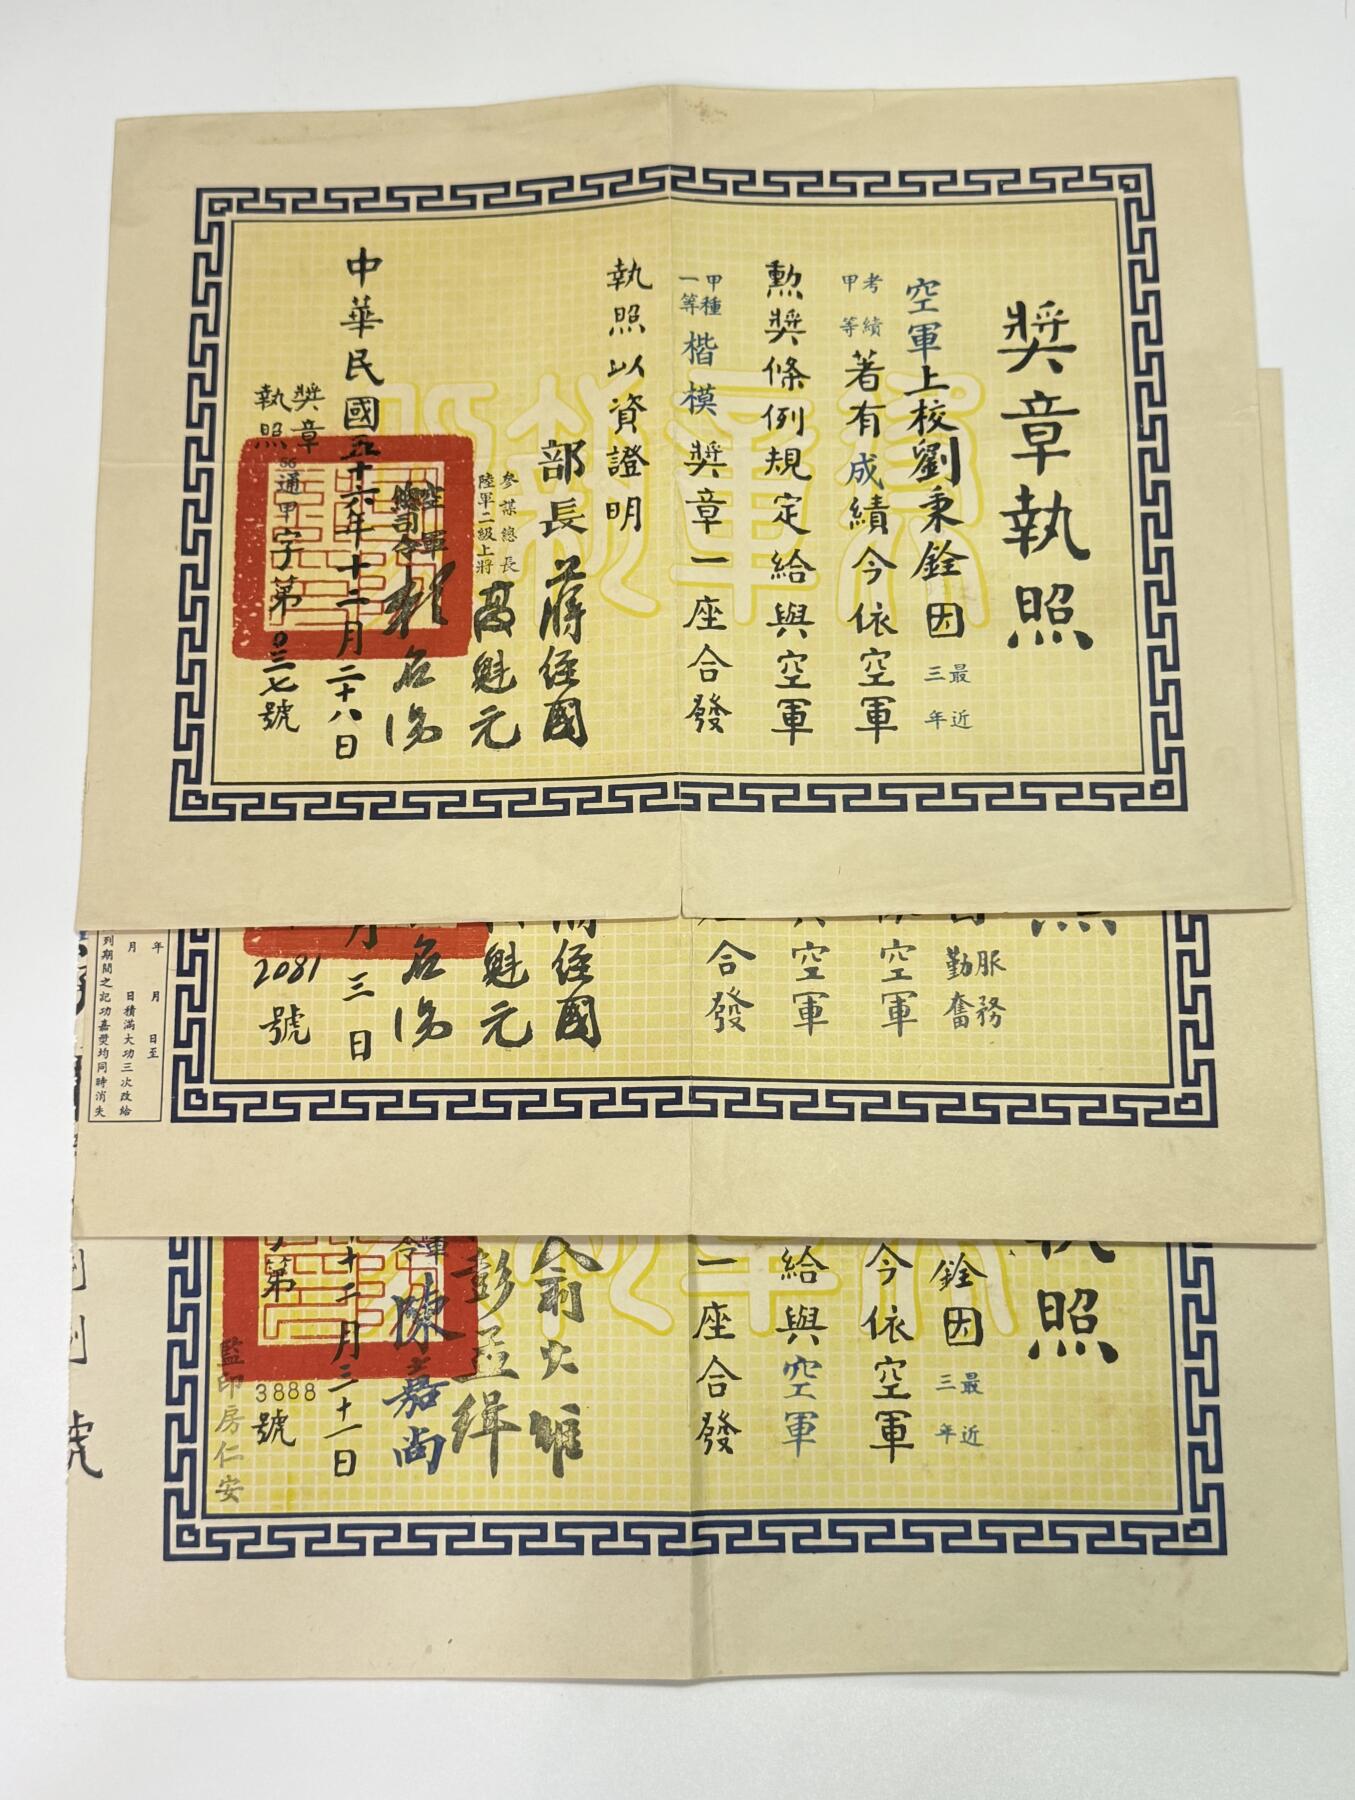 獎章執照
空軍上校劉秉銓因最近三年
考績甲等著有成績今依空軍
勲獎條例規定給與空軍
甲種一等楷模獎章一座合發
執照以資證明
部長蔣經國
參謀總長
陸軍二級上將高魁元
空軍總司令賴名湯
中華民國五十六年十二月二十八日
獎章執照56通甲字第0三七號
照
服務勤奮
空軍
空軍
合發
經國
魁元
名湯
月三日
2081號
年 月 日至
年 月 日積滿大功三次改給
列期間之記功嘉獎均同時消失
執照
銓因最近三年
今依空軍
給與空軍
一座合發
俞大維
彭孟緝
軍令陳嘉尚
十二月三十一日
第3888號
監印房仁安
號